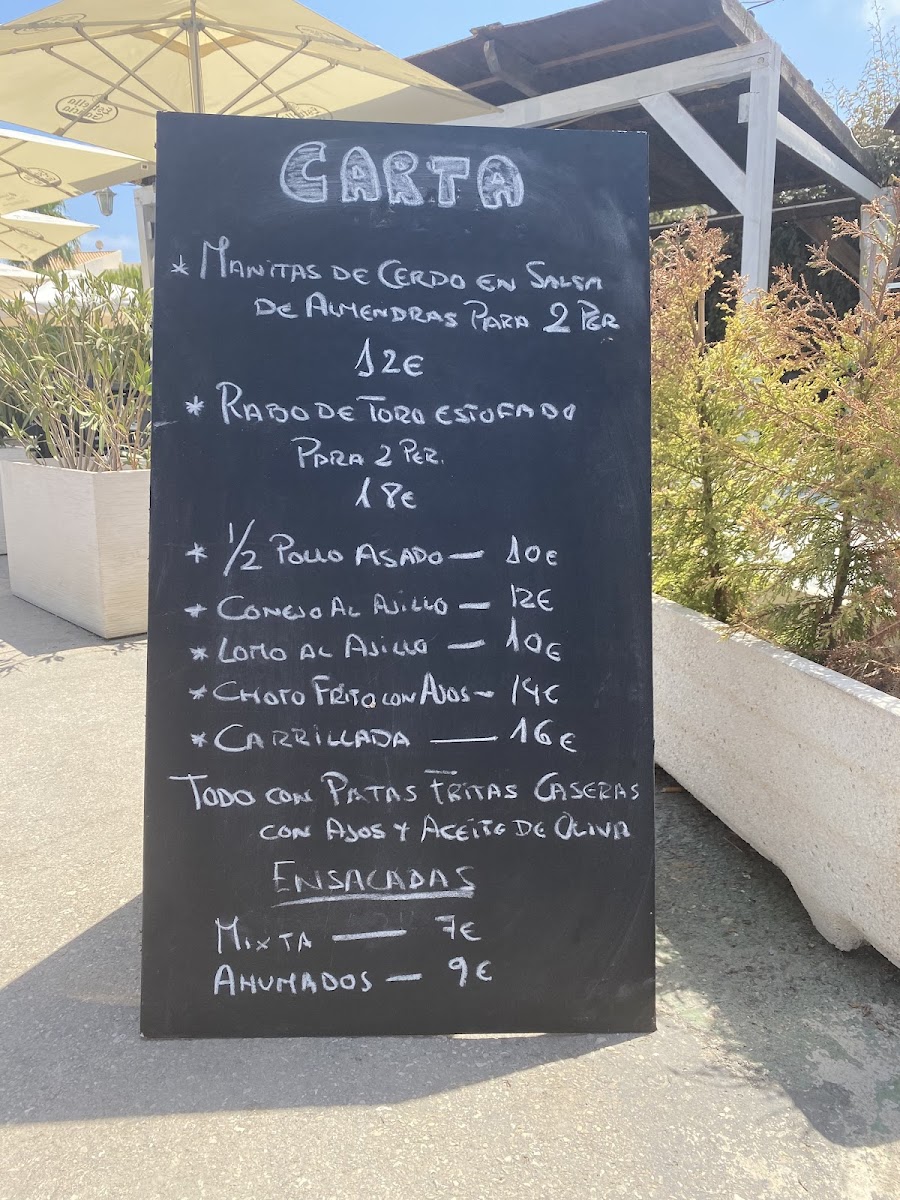 CARTA
* MANITAS DE CERDO EN SALSA
DE ALMENDRAS PARA 2 PER
12€
* RABO DE TORO ESTOFADO
PARA 2 PER.
18€
* 1/2 POLLO ASADO — 10€
* CONEJO AL AJILLO — 12€
* LOMO AL AJILLO — 10€
* CHOTO FRITO CON AJOS — 14€
* CARRILLADA — 16€
TODO CON PATAS FRITAS CASERAS
CON AJOS Y ACEITE DE OLIVA
ENSALADAS
MIXTA — 7€
AHUMADOS — 9€